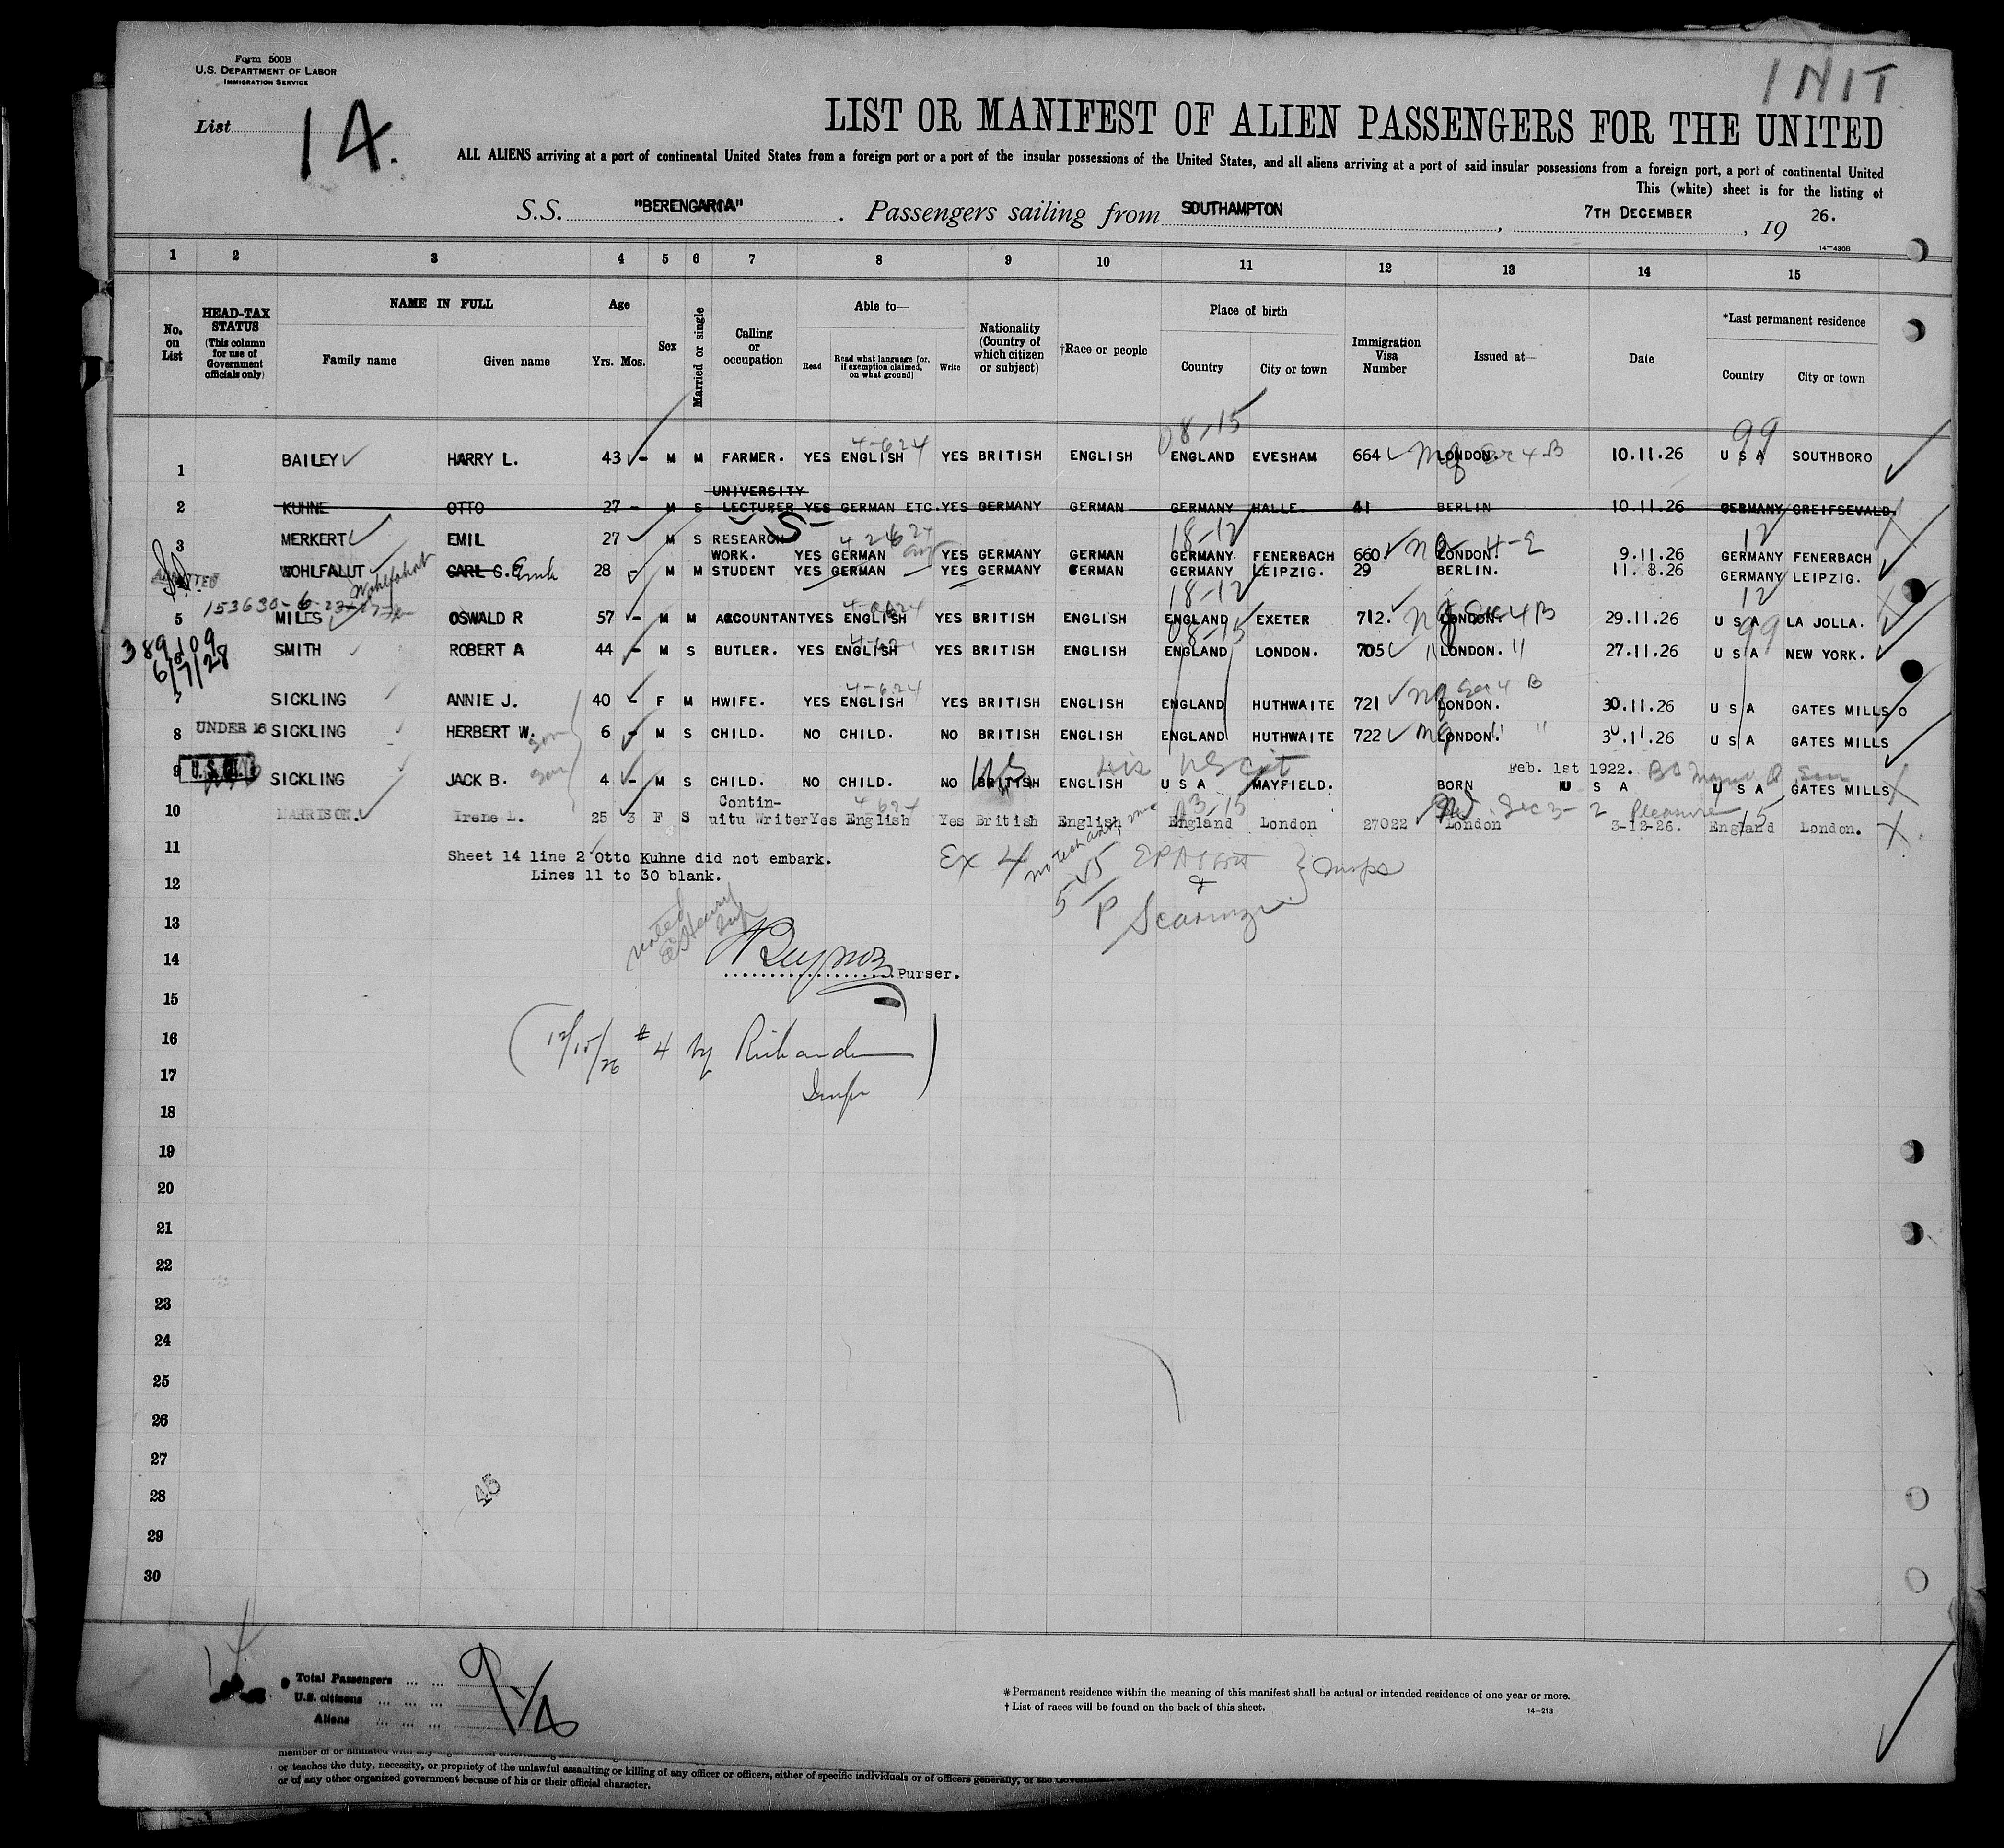 Form 500B
U.S. DEPARTMENT OF LABOR
IMMIGRATION SERVICE
1 N I T
List 14.
LIST OR MANIFEST OF ALIEN PASSENGERS FOR THE UNITED
ALL ALIENS arriving at a port of continental United States from a foreign port or a port of the insular possessions of the United States, and all aliens arriving at a port of said insular possessions from a foreign port, a port of continental United
This (white) sheet is for the listing of
S.S. "BERENGARIA" . Passengers sailing from SOUTHAMPTON , 7TH DECEMBER , 19 26.
14-430B
1 2 3 4 5 6 7 8 9 10 11 12 13 14 15
No. on List
HEAD-TAX STATUS (This column for use of Government officials only)
NAME IN FULL
Family name Given name
Age
Yrs. Mos.
Sex
Married or single
Calling or occupation
Able to—
Read Read what language [or, if exemption claimed, on what ground] Write
Nationality (Country of which citizen or subject)
†Race or people
Place of birth
Country City or town
Immigration Visa Number
Issued at—
Date
*Last permanent residence
Country City or town
08-15 99
4-6 24
1 BAILEY HARRY L. 43 - M M FARMER. YES ENGLISH YES BRITISH ENGLISH ENGLAND EVESHAM 664 LONDON. 10.11.26 U S A SOUTHBORO
2 KUHNE OTTO 27 - M S UNIVERSITY LECTURER YES GERMAN ETC. YES GERMANY GERMAN GERMANY HALLE. 41 BERLIN 10.11.26 GERMANY GREIFSEVALD.
18-12 12
3 MERKERT EMIL 27 M S RESEARCH WORK. YES GERMAN YES GERMANY GERMAN GERMANY. FENERBACH 660 LONDON. 9.11.26 GERMANY FENERBACH
ADMITTED WOHLFALUT Wohlfahrt CARL G. Erich 28 M M STUDENT YES GERMAN YES GERMANY GERMAN GERMANY LEIPZIG. 29 BERLIN. 11.8.26 GERMANY LEIPZIG.
18-12 12
153630-6-
5 MILES OSWALD R 57 - M M ACCOUNTANT YES ENGLISH YES BRITISH ENGLISH ENGLAND EXETER 712. LONDON. 29.11.26 U S A LA JOLLA.
389109
6/7/28
08-15 99
SMITH ROBERT A 44 - M S BUTLER. YES ENGLISH YES BRITISH ENGLISH ENGLAND LONDON. 705 LONDON. 27.11.26 U S A NEW YORK.
4-6 24
7 SICKLING ANNIE J. 40 - F M HWIFE. YES ENGLISH YES BRITISH ENGLISH ENGLAND HUTHWAITE 721 LONDON. 30.11.26 U S A GATES MILLS O
8 UNDER 16 SICKLING HERBERT W. son 6 - M S CHILD. NO CHILD. NO BRITISH ENGLISH ENGLAND HUTHWAITE 722 LONDON. 30.11.26 U S A GATES MILLS
Feb. 1st 1922.
9 SICKLING JACK B. son 4 - M S CHILD. NO CHILD. NO BRITISH ENGLISH U S A MAYFIELD. BORN U S A U S A GATES MILLS
10 HARRISON. Irene L. 25 3 F S Contin-uitu Writer Yes English Yes British English England London 27022 London 3-12-26. England London.
Sec 3- 2 Pleasure
11 Sheet 14 line 2 Otto Kuhne did not embark.
Lines 11 to 30 blank.
Ex 4
12
13
noted
14 Purser.
15
16 (12/15/26 #4 by
17
18
19
20
21
22
23
24
25
26
27
28
45
29
30
14
Total Passengers ... ...
U.S. citizens ... ... ...
Aliens ... ... ...
*Permanent residence within the meaning of this manifest shall be actual or intended residence of one year or more.
† List of races will be found on the back of this sheet.
14-213
or teaches the duty, necessity, or propriety of the unlawful assaulting or killing of any officer or officers, either of specific individuals or of officers generally, of the Government
or of any other organized government because of his or their official character.